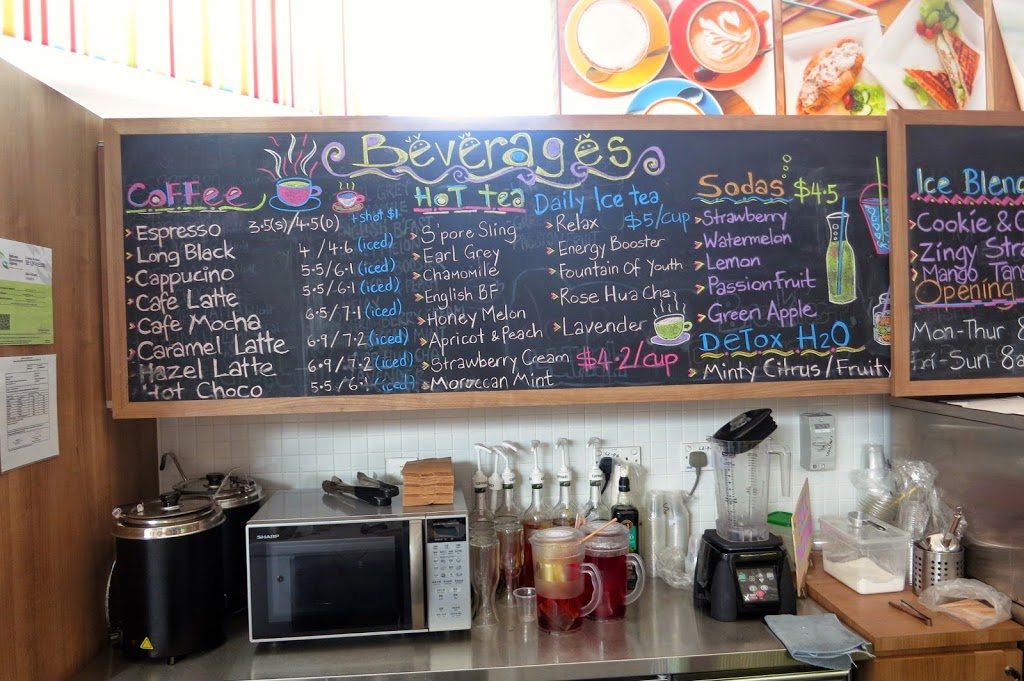 Beverages
Coffee
+shot $1
Espresso 3.5(s)/4.5(D)
Long Black 4 / 4.6 (iced)
Cappucino 5.5/6.1 (iced)
Cafe Latte 5.5/6.1 (iced)
Cafe Mocha 6.5/7.1 (iced)
Caramel Latte 6.9/7.2 (iced)
Hazel Latte 6.9/7.2 (iced)
Hot Choco 5.5/6.1 (iced)
HoT tea
S'pore Sling
Earl Grey
Chamomile
English BF
Honey Melon
Apricot & Peach
Strawberry Cream
Moroccan Mint
$4.2/cup
Daily Ice tea
$5/cup
Relax
Energy Booster
Fountain Of Youth
Rose Hua Cha
Lavender
Sodas $4.5
Strawberry
Watermelon
Lemon
Passion Fruit
Green Apple
DeTox H2O
Minty Citrus/Fruity
Ice Blen
Cookie & C
Zingy Stra
Mango Tan
Opening
Mon-Thur 8
Fri-Sun 8a
SHARP